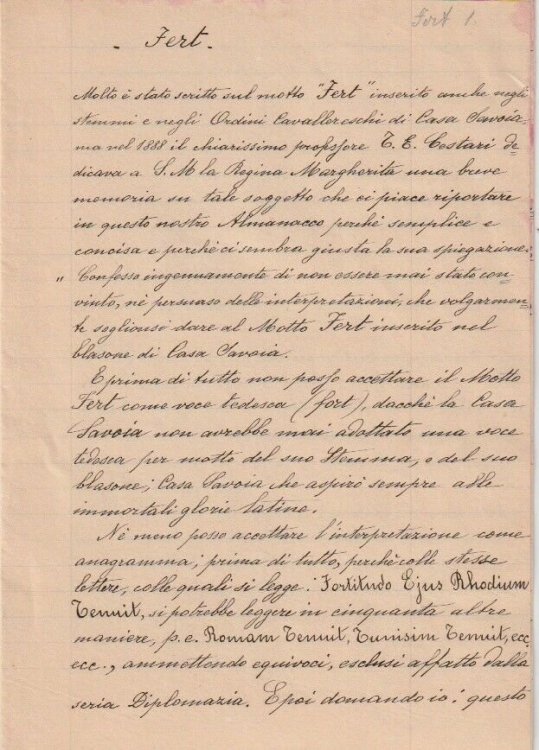 Fert 1.
- Fert -
Molto è stato scritto sul motto "Fert" inserito anche negli
stemmi e negli Ordini Cavallereschi di Casa Savoia
ma nel 1888 il chiarissimo professore T. E. Cestari de=
dicava a S. M la Regina Margherita una breve
memoria su tale soggetto che ci piace riportare
in questo nostro Almanacco perché semplice e
concisa e perché ci sembra giusta la sua spiegazione.
" Confesso ingenuamente di non essere mai stato con=
vinto, nè persuaso delle interpretazioni, che volgarmen=
te soglionsi dare al Motto Fert inserito nel
blasone di Casa Savoia.
E prima di tutto non posso accettare il Motto
Fert come voce tedesca (fort), dacchè la Casa
Savoia non avrebbe mai adottato una voce
tedesca per motto del suo Stemma, o del suo
blasone; Casa Savoia che aspirò sempre alle
immortali glorie latine.
Nè meno posso accettare l'interpretazione come
anagramma; prima di tutto, perchè colle stesse
lettere, colle quali si legge: Fortitudo Ejus Rhodium
Tenuit, si potrebbe leggere in cinquanta altre
maniere, p. e. Romam Tenuit, Tunisim Tenuit, ecc
ecc., ammettendo equivoci, esclusi affatto dalla
seria Diplomazia. E poi domando io: questo